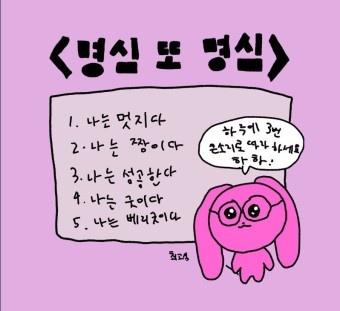 <명심 또 명심>
1. 나는 멋지다
2. 나는 짱이다
3. 나는 성공한다
4. 나는 굿이다
5. 나는 베리굿이다
하루에 3번
큰소리로 따라하세요
하하!
최고심